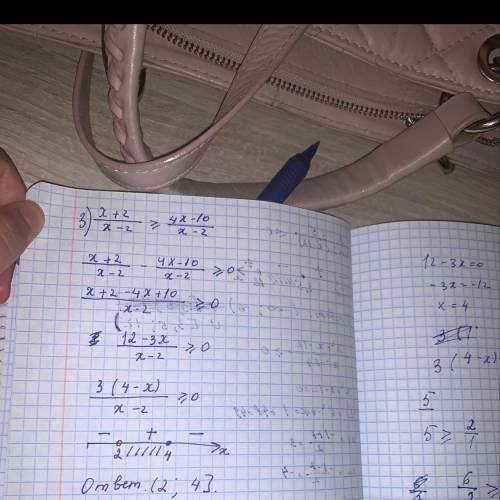 3) (x+2)/(x-2) ≥ (4x-10)/(x-2)
(x+2)/(x-2) - (4x-10)/(x-2) ≥ 0
(x+2-4x+10)/(x-2) ≥ 0
(12-3x)/(x-2) ≥ 0
3(4-x)/(x-2) ≥ 0
− + −
2 4 x
Ответ. (2; 4].
12-3x=0
-3x=-12
x=4
3(4-x)
5
5 ≥ 2/1